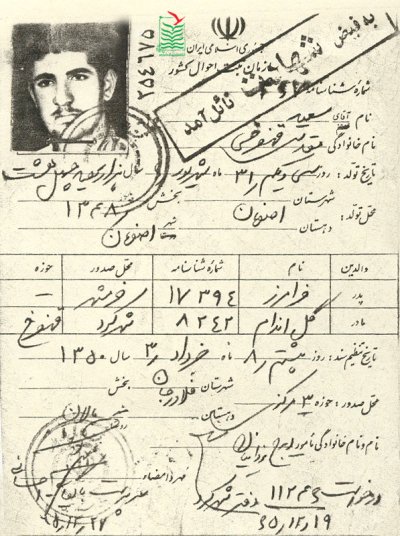 جمهوری اسلامی ایران
سازمان ثبت احوال کشور
به فیض شهادت نائل آمد
۲۵۴۶۷۵
شماره شناسنامه
نام آقای سعید
نام خانوادگی
تاریخ تولد: روز سی و یکم ۳۱ ماه شهریور سال هزار سیصد چهل هشت
۱۳۴۸
محل تولد: شهرستان اصفهان بخش
دهستان شهر اصفهان
والدین نام شماره شناسنامه محل صدور حوزه
پدر فرامرز ۱۷۳۹۴ خرمشهر –
مادر گل اندام ۸۲۴۲ شهرکرد قهفرخ
تاریخ تنظیم سند: روز بیستم ماه خرداد ۳ سال ۱۳۵۰
محل صدور: حوزه ۳ مرکزی شهرستان فلاورجان بخش
دهستان
نام و نام خانوادگی مأمور ایرج
مهر و امضاء
۱۱۲۴۶ دفتر شهرکرد
۶۵/۱۲/۱۹
۶۵/۱۲/۲۷